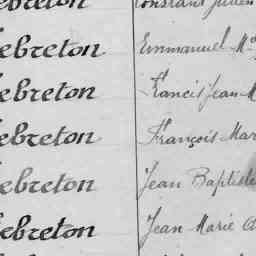 ebreton Constant Julien
Lebreton Emmanuel M
Lebreton Francis Jean M
Lebreton François Mar
Lebreton Jean Baptiste
Lebreton Jean Marie A